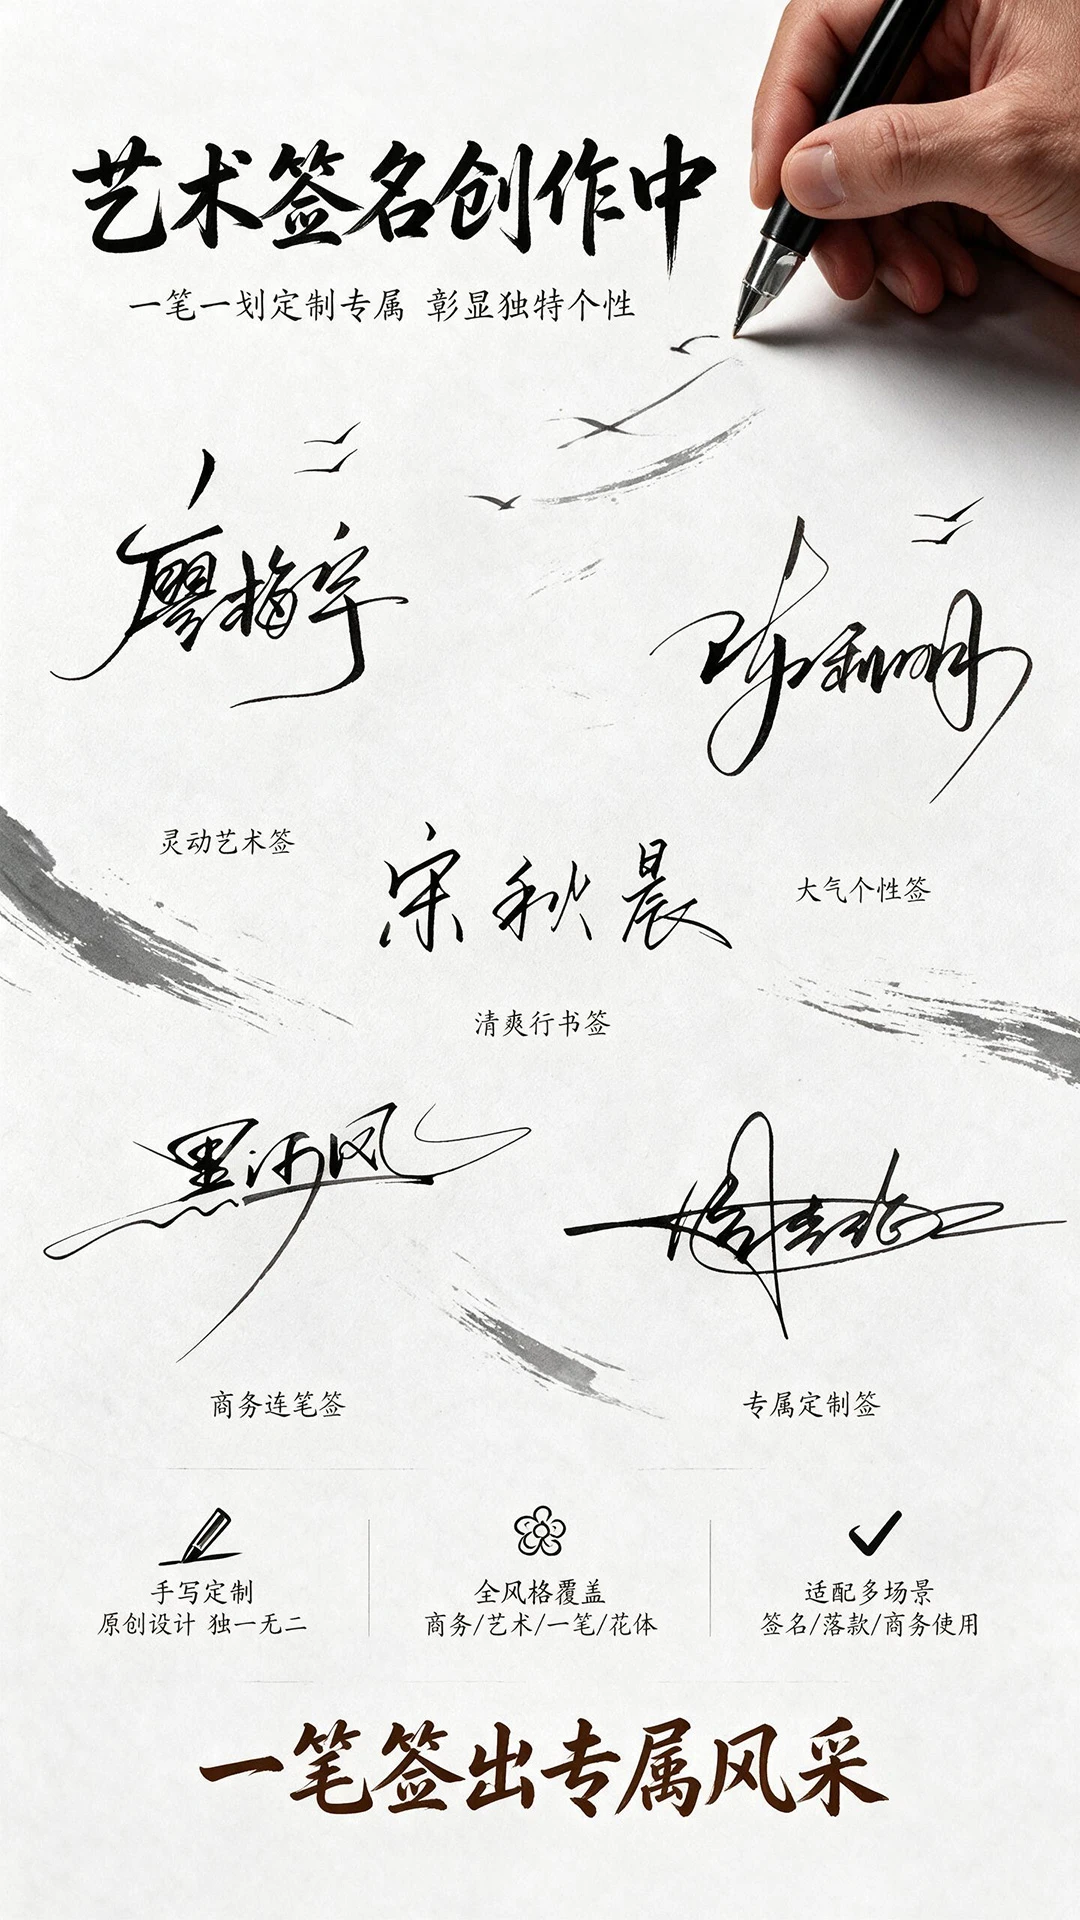 艺术签名创作中
一笔一划定制专属 彰显独特个性
廖梅宇
陈利明
灵动艺术签
宋秋晨
大气个性签
清爽行书签
黑沙风
商务连笔签
专属定制签
手写定制
原创设计 独一无二
全风格覆盖
商务/艺术/一笔/花体
适配多场景
签名/落款/商务使用
一笔签出专属风采